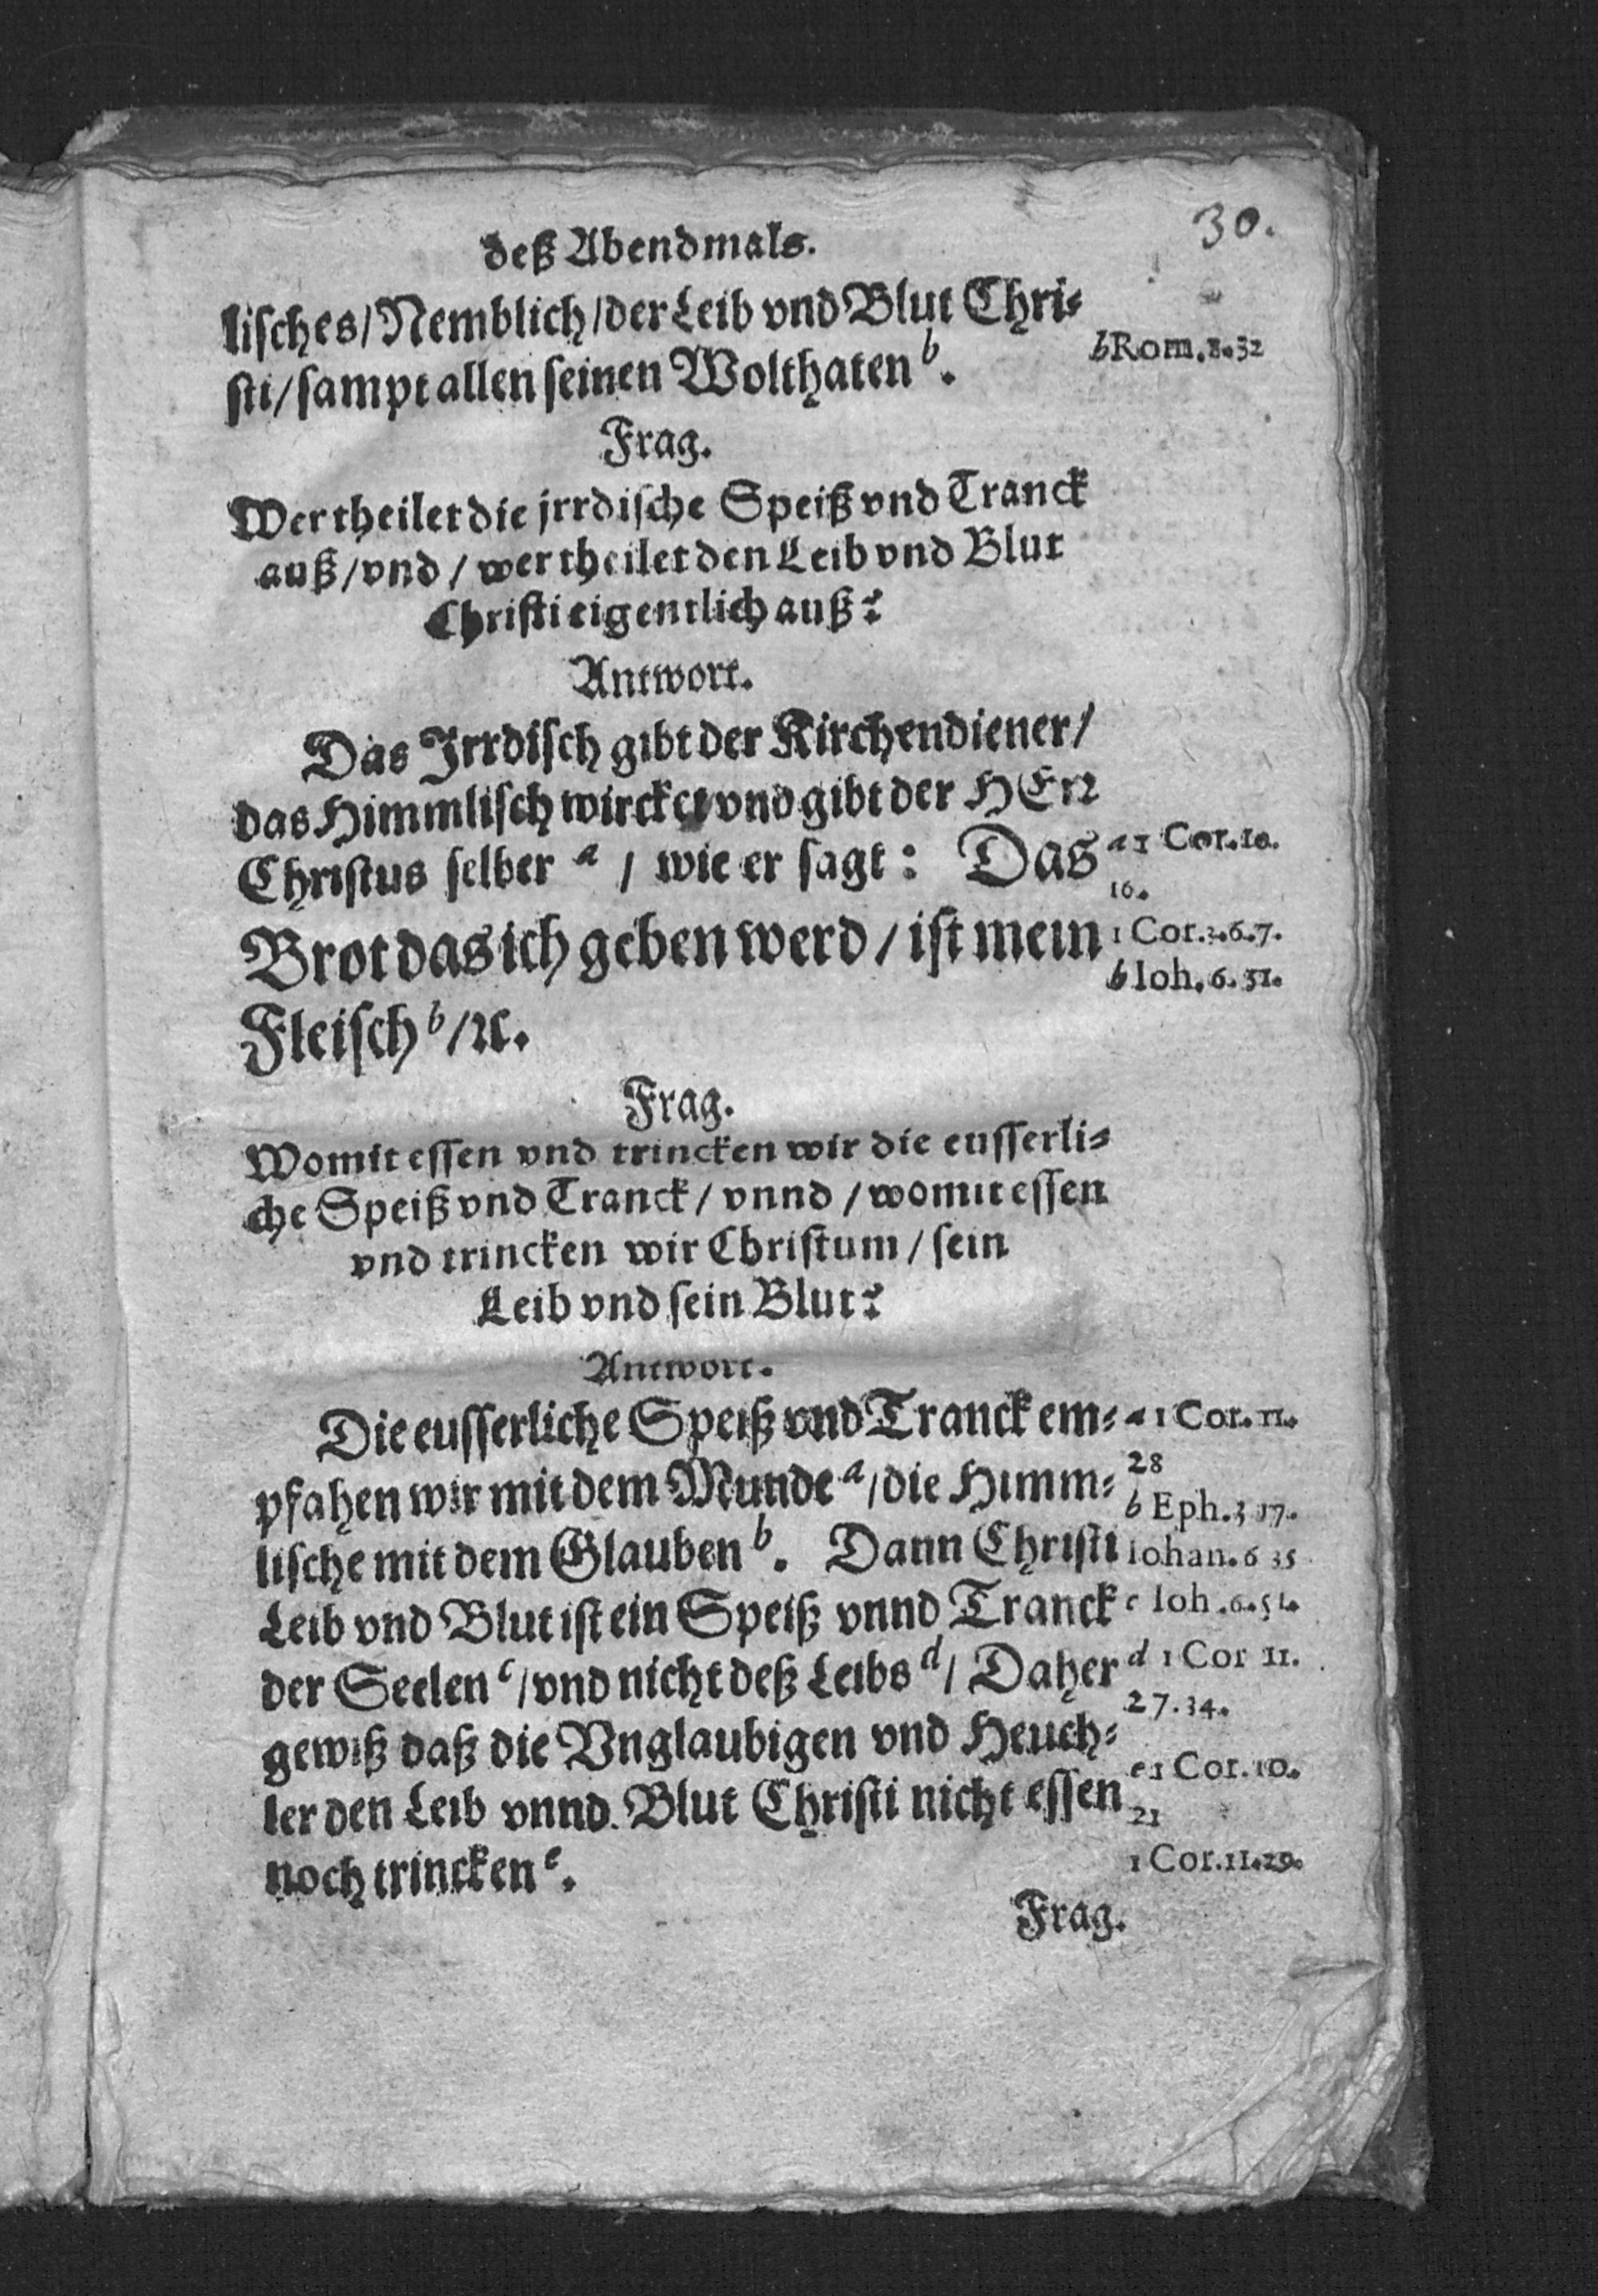 30.
deß Abendmals.
lisches/Nemblich/der Leib vnd Blut Chri-
sti/sampt allen seinen Wolthaten b.
b Rom. 8. 32
Frag.
Wer theilet die jrrdische Speiß vnd Tranck
auß/vnd/wer theilet den Leib vnd Blut
Christi eigentlich auß?
Antwort.
Das Jrrdisch gibt der Kirchendiener/
das Himmlisch wircket vnd gibt der HErr
Christus selber a / wie er sagt: Das
a 1 Cor. 10.
16.
Brot das ich geben werd/ist mein
1 Cor. 3. 6. 7.
b Ioh. 6. 51.
Fleisch b/ꝛc.
Frag.
Womit essen vnd trincken wir die eusserli-
che Speiß vnd Tranck/vnnd/womit essen
vnd trincken wir Christum/sein
Leib vnd sein Blut?
Antwort.
Die eusserliche Speiß vnd Tranck em-
a 1 Cor. 11.
28
pfahen wir mit dem Munde a/die Himm-
b Eph. 3 17.
lische mit dem Glauben b. Dann Christi
Iohan. 6 35
Leib vnd Blut ist ein Speiß vnnd Tranck
c Ioh. 6. 51.
der Seelen c/vnd nicht deß Leibs d/ Daher
d 1 Cor 11.
27. 34.
gewiß daß die Vnglaubigen vnd Heuch-
e 1 Cor. 10.
ler den Leib vnnd Blut Christi nicht essen
21
noch trincken e.
1 Cor. 11. 29.
Frag.